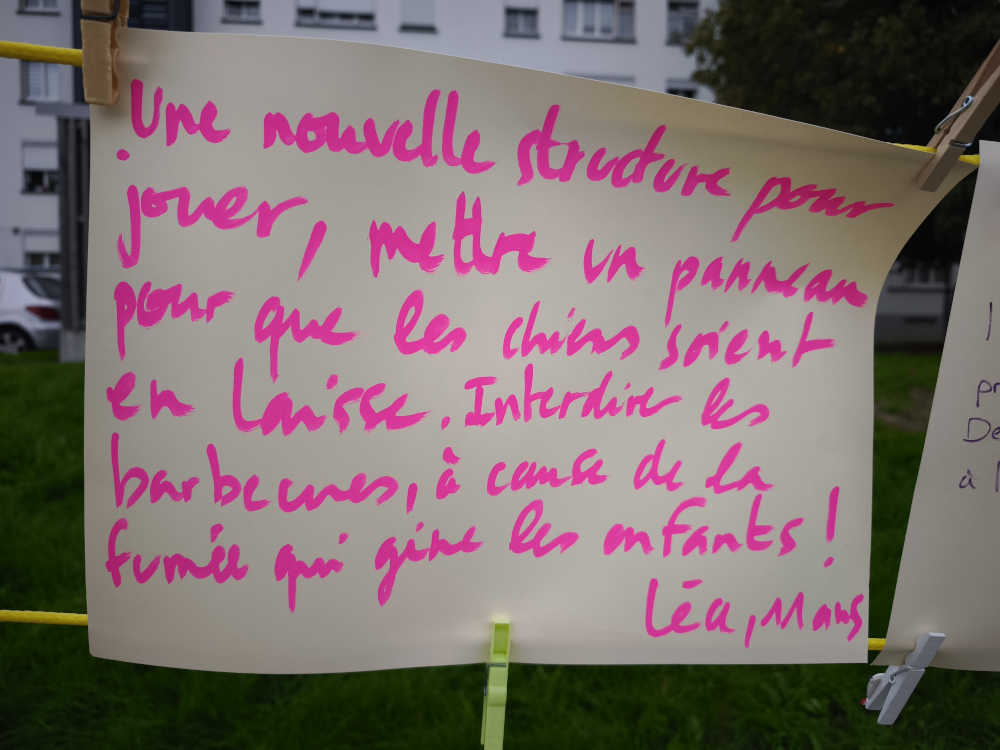 Une nouvelle structure pour
jouer, mettre un panneau
pour que les chiens soient
en laisse. Interdire les
barbecues, à cause de la
fumée qui gène les enfants !
Léa, 11 ans
pr
De
à